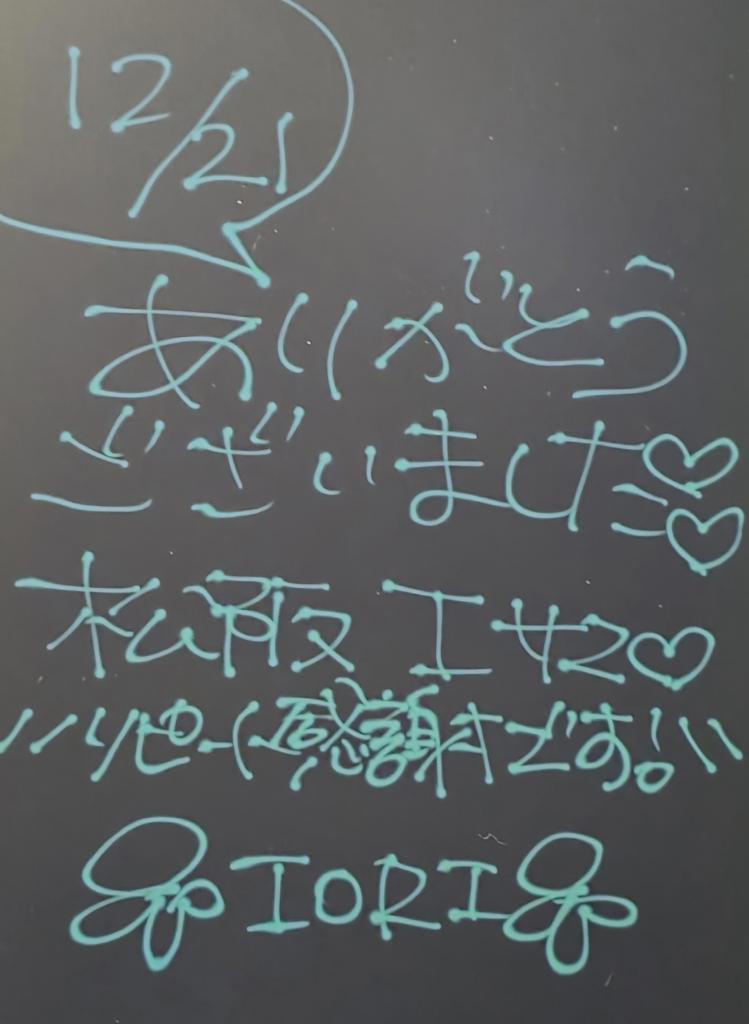 12/21
ありがとう
ございました♡♡
松阪 エサ2♡
リピート感謝です!!
IORI